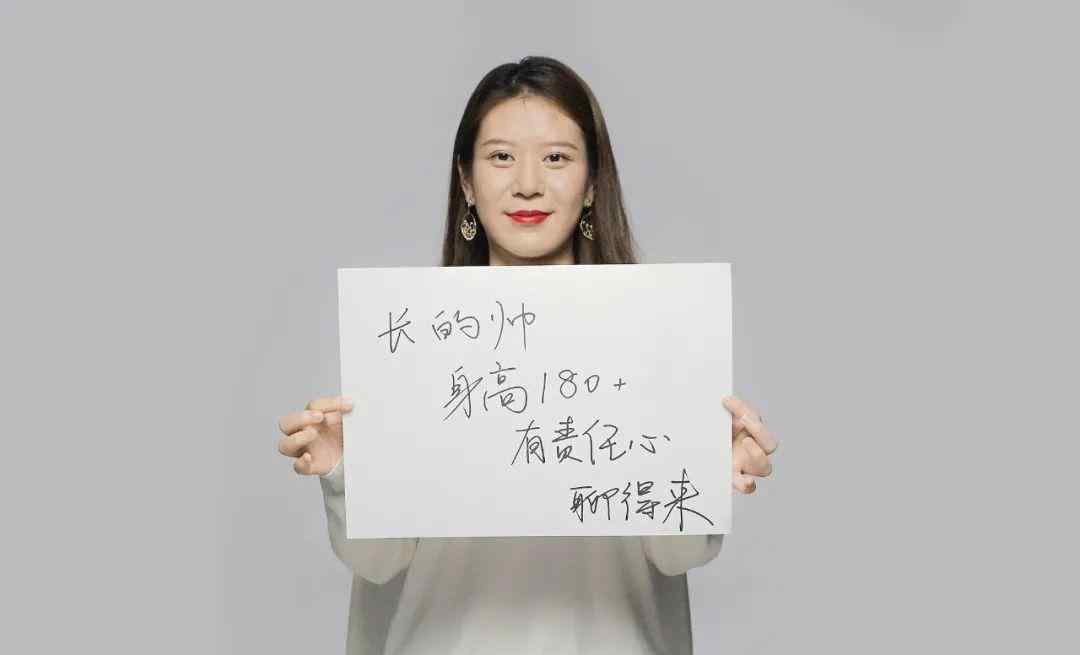 长的帅
身高180+
有责任心
聊得来